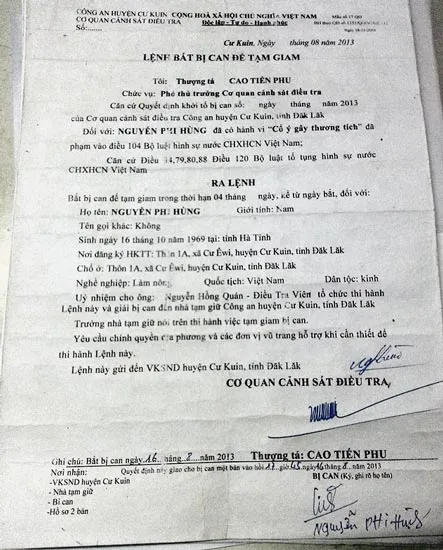 CÔNG AN HUYỆN CƯ KUIN CỘNG HOÀ XÃ HỘI CHỦ NGHĨA VIỆT NAM Mẫu số 17 QĐ
CƠ QUAN CẢNH SÁT ĐIỀU TRA Độc lập - Tự do - Hạnh phúc
Số:.......
Cư Kuin, Ngày tháng 08 năm 2013
LỆNH BẮT BỊ CAN ĐỂ TẠM GIAM
Tôi: Thượng tá CAO TIẾN PHU
Chức vụ: Phó thủ trưởng Cơ quan cảnh sát điều tra
Căn cứ Quyết định khởi tố bị can số: ngày tháng năm 2013
của Cơ quan cảnh sát điều tra Công an huyện Cư Kuin, tỉnh Đăk Lăk
Đối với: NGUYỄN PHI HÙNG đã có hành vi "Cố ý gây thương tích" đã
phạm vào điều 104 Bộ luật hình sự nước CHXHCN Việt Nam;
Căn cứ Điều 34,79,80,88 Điều 120 Bộ luật tố tụng hình sự nước
CHXHCN Việt Nam
RA LỆNH
Bắt bị can để tạm giam trong thời hạn 04 tháng ngày, kể từ ngày bắt, đối với:
Họ tên: NGUYỄN PHI HÙNG Giới tính: Nam
Tên gọi khác: Không
Sinh ngày 16 tháng 10 năm 1969 tại: tỉnh Hà Tĩnh
Nơi đăng ký HKTT: Thôn 1A, xã Cư Êwi, huyện Cư Kuin, tỉnh Đăk Lăk
Chỗ ở: Thôn 1A, xã Cư Êwi, huyện Cư Kuin, tỉnh Đăk Lăk
Nghề nghiệp: Làm nông Quốc tịch: Việt Nam Dân tộc: kinh
Uỷ nhiệm cho ông: Nguyễn Hồng Quân - Điều Tra Viên tổ chức thi hành
Lệnh này và giải bị can đến nhà tạm giữ Công an huyện Cư Kuin, tỉnh Đăk Lăk
Trưởng nhà tạm giữ nói trên thi hành việc tạm giam bị can.
Yêu cầu chính quyền địa phương và các đơn vị vũ trang hỗ trợ khi cần thiết để
thi hành Lệnh này.
Lệnh này gửi đến VKSND huyện Cư Kuin, tỉnh Đăk Lăk
CƠ QUAN CẢNH SÁT ĐIỀU TRA
Thượng tá: CAO TIẾN PHU
Ghi chú: Bắt bị can ngày 16 tháng 8 năm 2013
Nơi nhận: Quyết định này giao cho bị can một bản vào hồi 17 giờ 45 ngày 16 tháng 8 năm 2013
-VKSND huyện Cư Kuin BỊ CAN (Ký, ghi rõ họ tên)
- Nhà tạm giữ
- Bị can
-Hồ sơ 2 bản
Nguyễn Phi Hùng